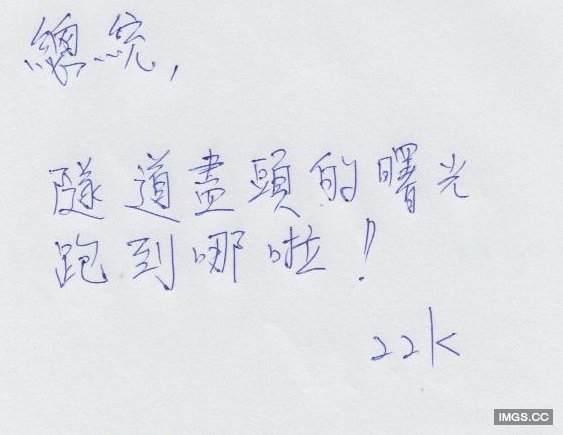 總統,
隧道盡頭的曙光
跑到哪啦!
22k
IMGS.CC